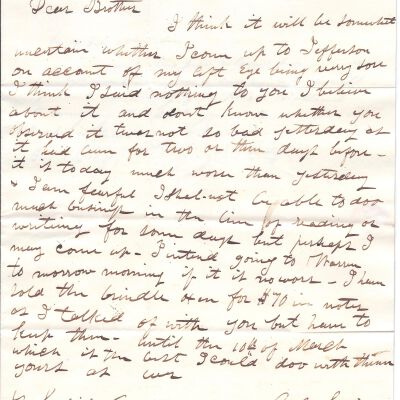 Dear Brother
I think it will be somewhat
uncertain whether I come up to Jefferson
on account of my left Eye being very sore
I think I said nothing to you I believe
about it and dont know whether you
observed it twas not so bad yesterday as
it had been for two or three days before -
it is today much worse than yesterday
& I am fearful I shal not be able to doo
much business in the line of reading or
writing for some days but perhaps I
may come up - I intend going to Warren
to morrow morning if it is no worse - I have
sold the brindle oxen for $70 in notes
as I talked of with you but have to
keep them - until the 10th of March
which is the best I could doo with them
yours as ever